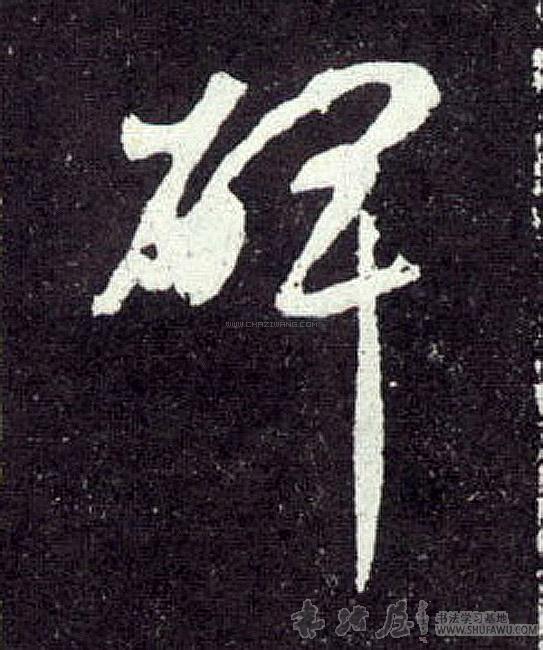 碑
WWW.CHAZIWANG.COM
书法学习基地
WWW.SHUFAWU.COM